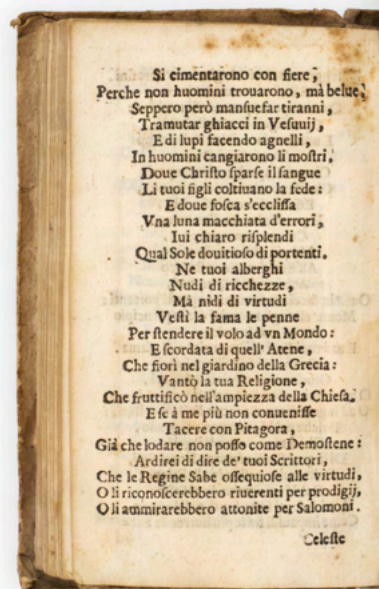 Si cimentarono con fiere,
Perche non huomini trouarono, mà belue.
Seppero però mansuefar tiranni,
Tramutar ghiacci in Vesuuij,
E di lupi facendo agnelli,
In huomini cangiarono li mostri.
Doue Christo sparse il sangue
Li tuoi figli coltiuano la fede:
E doue fosca s'ecclissa
Vna luna macchiata d'errori,
Iui chiaro risplendi
Qual Sole douitioso di portenti.
Ne tuoi alberghi
Nudi di ricchezze,
Mà nidi di virtudi
Vestì la fama le penne
Per stendere il volo ad vn Mondo:
E scordata di quell' Atene,
Che fiorì nel giardino della Grecia:
Vantò la tua Religione,
Che fruttificò nell'ampiezza della Chiesa.
E se à me più non conuenisse
Tacere con Pitagora,
Già che lodare non posso come Demostene:
Ardirei di dire de' tuoi Scrittori,
Che le Regine Sabe ossequiose alle virtudi,
O li riconoscerebbero riuerenti per prodigij,
O li ammirarebbero attonite per Salomoni.
Celeste